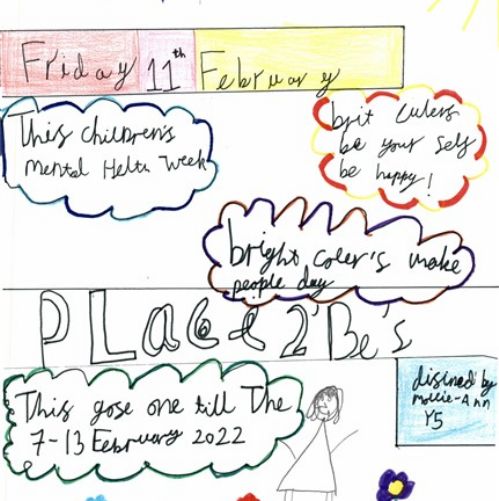 Friday 11th February
This children's
mental Helth week
brit Culers
be your self
be happy!
bright coler's make
people day
PLace 2 Be's
This gose one till The
7-13 February 2022
disined by
mollie-Ann
Y5